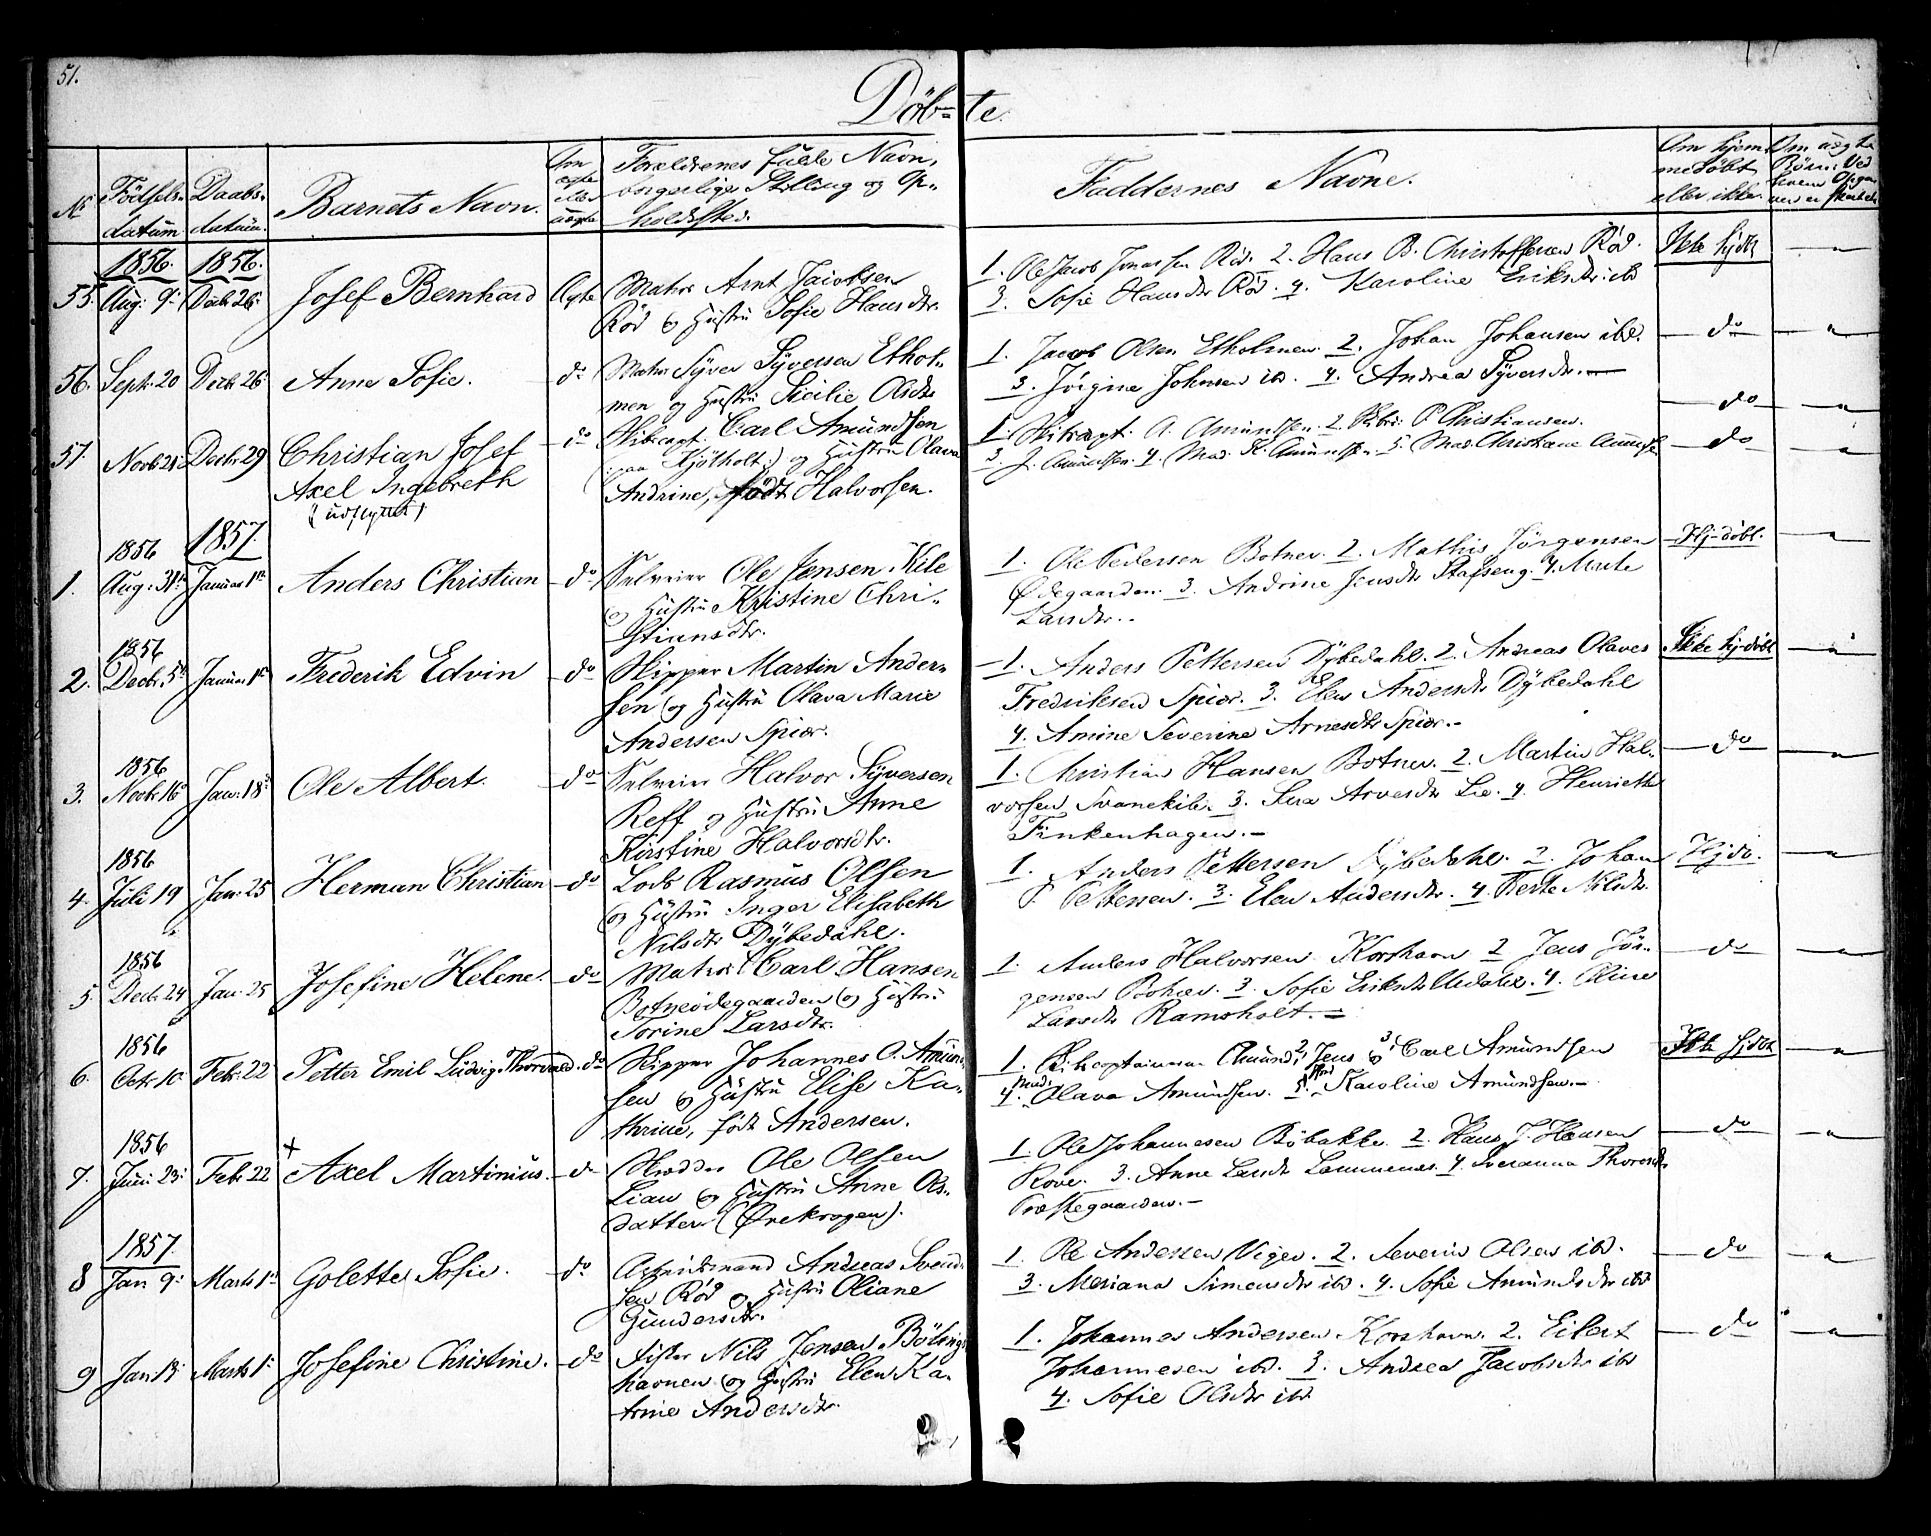 51.
Döb-te.
No
Födsels-
datum
Daabs-
datum.
Barnets Navn.
Om
ægte
eller
uægte
Forældrenes fulde Navn,
borgerlige Stilling og Op-
holdssted.
Faddernes Navne.
Om hjem-
medöbt
eller ikke.
1856.
1856.
55. Aug: 9: Decb 26. Josef Bernhard Ægte
Matros Arnt Jacobsen
Röd og Hustru Sofie Hansdtr.
1. Ole Jacob Jonassen Röd. 2. Hans B. Christoffersen Röd.
3. Sofie Hansdtr Röd. 4. Karoline Eriksdtr. ibd
Ikke hjdöbt
56. Sept. 20 Decb. 26. Anne Sofie. do
Matros Syver Syversen Ethol-
men og Hustru Sicilie Olsdtr
1. Jacob Olsen Etholmen. 2. Johan Johansen ibd.
3. Jörgine Johnsen ib. 4. Andrea Syversdtr.
do
57. Novb 21. Decb. 29 Christian Josef
Axel Ingebreth
(udflyttet)
do
Skibscapt. Carl Amundsen
(paa Kjölholt) og Hustru Olava
Andrine, födt Halvorsen.
1. Skibscapt. A. Amundsen. 2. P. Christiansen.
3. J. Amundsen. 4. Mad. K. Amundsen. 5. Mad. Christiane Amundsen
do
do
1856 1857.
1. Aug: 31te Januar 1te Anders Christian do
Selveier Ole Jensen Kile
og Hustru Kristine Chri-
stiansdtr.
1. Ole Pedersen Botner. 2. Mathis Jörgensen
Ödegaarden. 3. Andrine Jensdtr Stafseng. 4. Marte
Larsdtr.
Hj-döbt.
1856
2. Decb. 5te Januar 1te Frederik Edvin do
Skipper Martin Ander-
sen og Hustru Olava Marie
Andersen Spiør.
1. Anders Pettersen Dybedahl. 2. Andreas Olaves
Fredriksen Spiør. 3. Elen Andersdtr Dybedahl
4. Amine Severine Arnesdtr Spiør.
Ikke hj-döbt
1856
3. Novb. 16de Jan. 18de Ole Albert. do
Selveier Halvor Syversen
Reff og Hustru Anne
Kirstine Halvorsdtr.
1. Christian Hansen Botner. 2. Martin Hal-
vorsen Svanekil. 3. Arvesdtr Lie. 4. Henriette
Finkenhagen.
do
1856
4. Juli 19 Jan. 25 Herman Christian do
Lods Rasmus Olsen
og Hustru Inger Elisabeth
Nilsdtr Dybedahl.
1. Anders Pettersen Dybedahl. 2. Johan
P. Pettersen. 3. Elen Andersdtr. 4. Berte Nilsdtr.
Hjdö.
1856
5. Decb. 24 Jan. 25 Josefine Helene. do
Matros Carl Hansen
Botneödegaarden og Hustru
Torine Larsdtr.
1. Anders Halvorsen Korshavn 2 Jens Jör-
gensen Botner. 3. Sofie Eriksdtr. 4. Oline
Larsdtr Ramsholt.
do
1856
6. Octb. 10 Feb. 22 Petter Emil Ludvig Thorvald. do
Skipper Johannes O. Amun-
sen og Hustru Elise Ka-
thrine, födt Andersen.
1. Skibscaptainerne Amund, 2 Jens og 3 Carl Amundsen
4. Mad. Olava Amundsen. 5. Mad Karoline Amundsen.
Ikke hjdöbt
1856
7. Juni 23: Feb. 22 + Axel Martinius. do
Skrædder Ole Olsen
Lian og Hustru Anne Ols-
datter (Ørekrogen).
1. Ole Johannesen Röbakke. 2. Hans J. Hansen
Rove. 3. Anne Larsdtr Lammenes. 4. Thoresdtr
Præstegaarden.
do
1857.
8 Jan 9: Marts 1ste Golette Sofie. do
Arbeidsmand Andreas Svend-
sen Röd og Hustru Oliane
Gundersdtr.
1. Ole Andersen Viger. 2. Severin Olsen ibd.
3. Meriana Simensdtr ibd. 4. Sofie Amundsdtr ibd
do
9 Jan 13: Marts 1: Josefine Christine. do
Fisker Nils Jensen Bölings-
havnen og Hustru Elen Ka-
trine Andersdtr.
1. Johannes Andersen Korshavn. 2. Eilert
Johannesen ibd. 3. Andrea Jacobsdtr ibd
4. Sofie Olsdtr ibd.
do